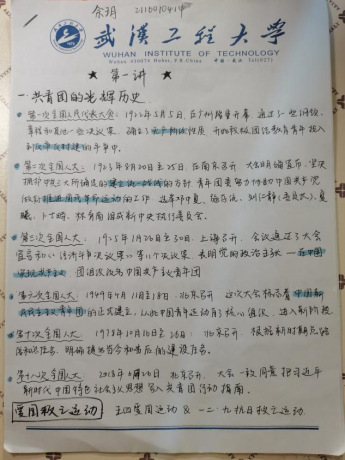 余玥 2110010414
武漢工程大学
WUHAN INSTITUTE OF TECHNOLOGY
Wuhan 430074 Hubei, P.R.China
★ 第一讲 ★
一.共青团的光辉历史
第一次全国人民代表大会：1922年5月5日，在广州隆重开幕，通过了一些纲领、
章程和其他一些决议案，确立了无产阶级性质，开始积极团结教育青年投入
到反帝反封建的斗争中。
第二次全国人大：1923年8月20日至25日 在南京召开 大会明确宣布，坚决
拥护中共三大所确定的建立统一战线的方针 青年团要努力协助中国共产党
做好推进国民革命运动的工作
林育南组成新中央执行委员会。
第三次全国人大：1925年1月26日至30日，上海召开，会议通过了大会
宣言和《经济斗争决议案》等
实现共产主义 团组织改为中国共产主义青年团
1949年4月11至18日 北京召开 这次大会标志着中国新
民主主义青年团的正式建立，从此中国青年运动有了核心组织，进入新阶段
第十次全国人大：1978年10月16日至26，北京召开
第十八次全国人大 2018年6月26日 北京召开，大会一致同意 把习近平
新时代中国特色社会主义思想 写入共青团行动指南。
爱国救亡运动 五四爱国运动 & 一二·九抗日救亡运动.